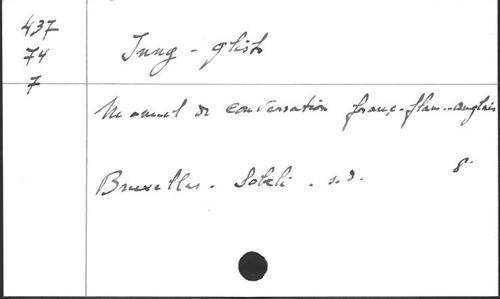 437
74
7
Jung - 
Manuel de conversation franç.-flam.-anglais
Bruxelles. . s.d. 8°